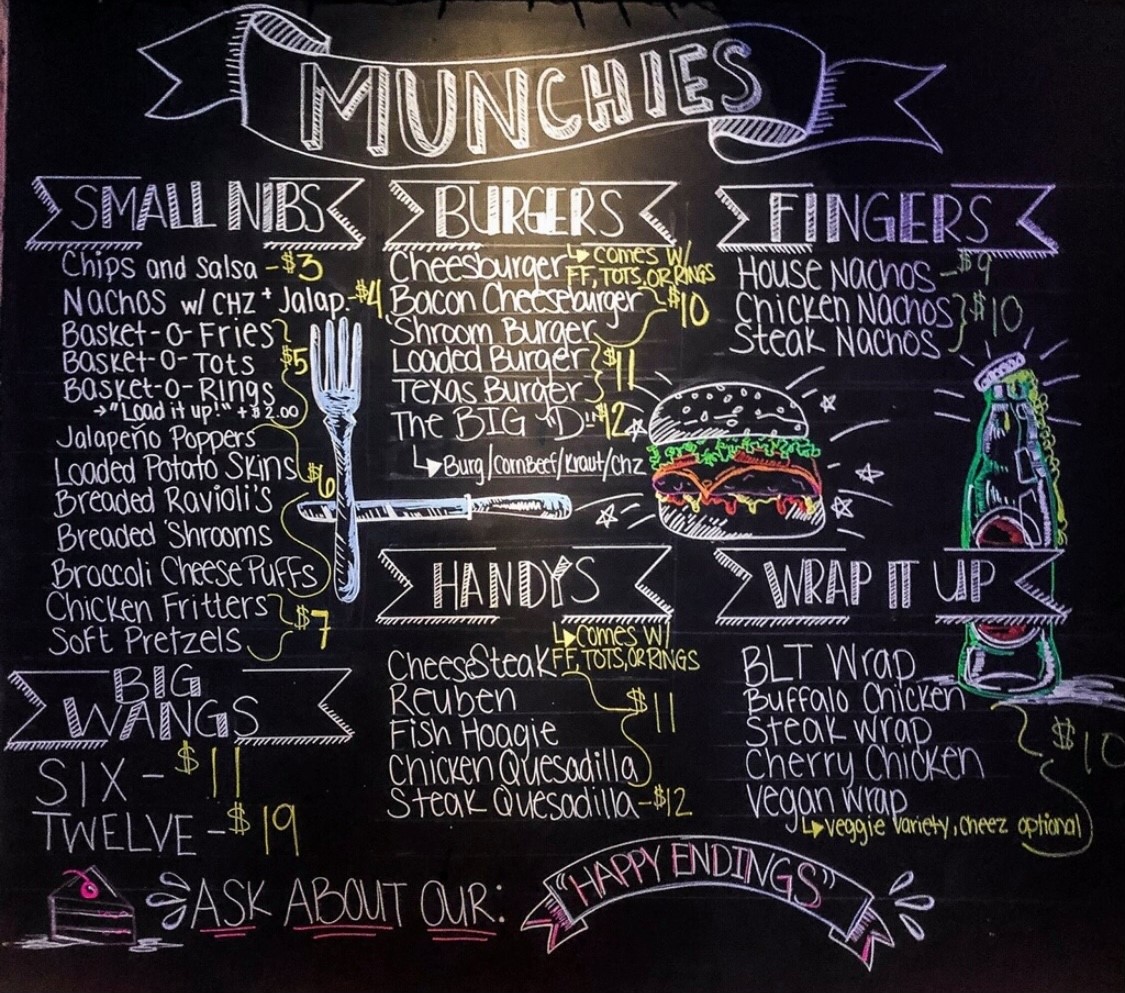 MUNCHIES
SMALL NIBS
Chips and Salsa - $3
Nachos w/ CHZ + Jalap. - $4
Basket-O-Fries
Basket-O-Tots $5
Basket-O-Rings
→ "Load it up!" + $2.00
Jalapeño Poppers
Loaded Potato Skins $6
Breaded Ravioli's
Breaded 'Shrooms
Broccoli Cheese Puffs
Chicken Fritters $7
Soft Pretzels
BIG
WANGS
SIX - $11
TWELVE - $19
BURGERS
Comes w/
FF, TOTS, OR RINGS
Cheesburger
Bacon Cheeseburger $10
'Shroom Burger
Loaded Burger $11
Texas Burger
The BIG "D" $12
Burg/CornBeef/Kraut/Chz
HANDY'S
Comes w/
FF, TOTS, OR RINGS
CheeseSteak
Reuben $11
Fish Hoagie
Chicken Quesadilla
Steak Quesadilla - $12
FINGERS
House Nachos - $9
Chicken Nachos $10
Steak Nachos
WRAP IT UP
BLT Wrap
Buffalo Chicken
Steak Wrap $10
Cherry Chicken
Vegan Wrap
Veggie Variety, Cheez optional
ASK ABOUT OUR:
"HAPPY ENDINGS"